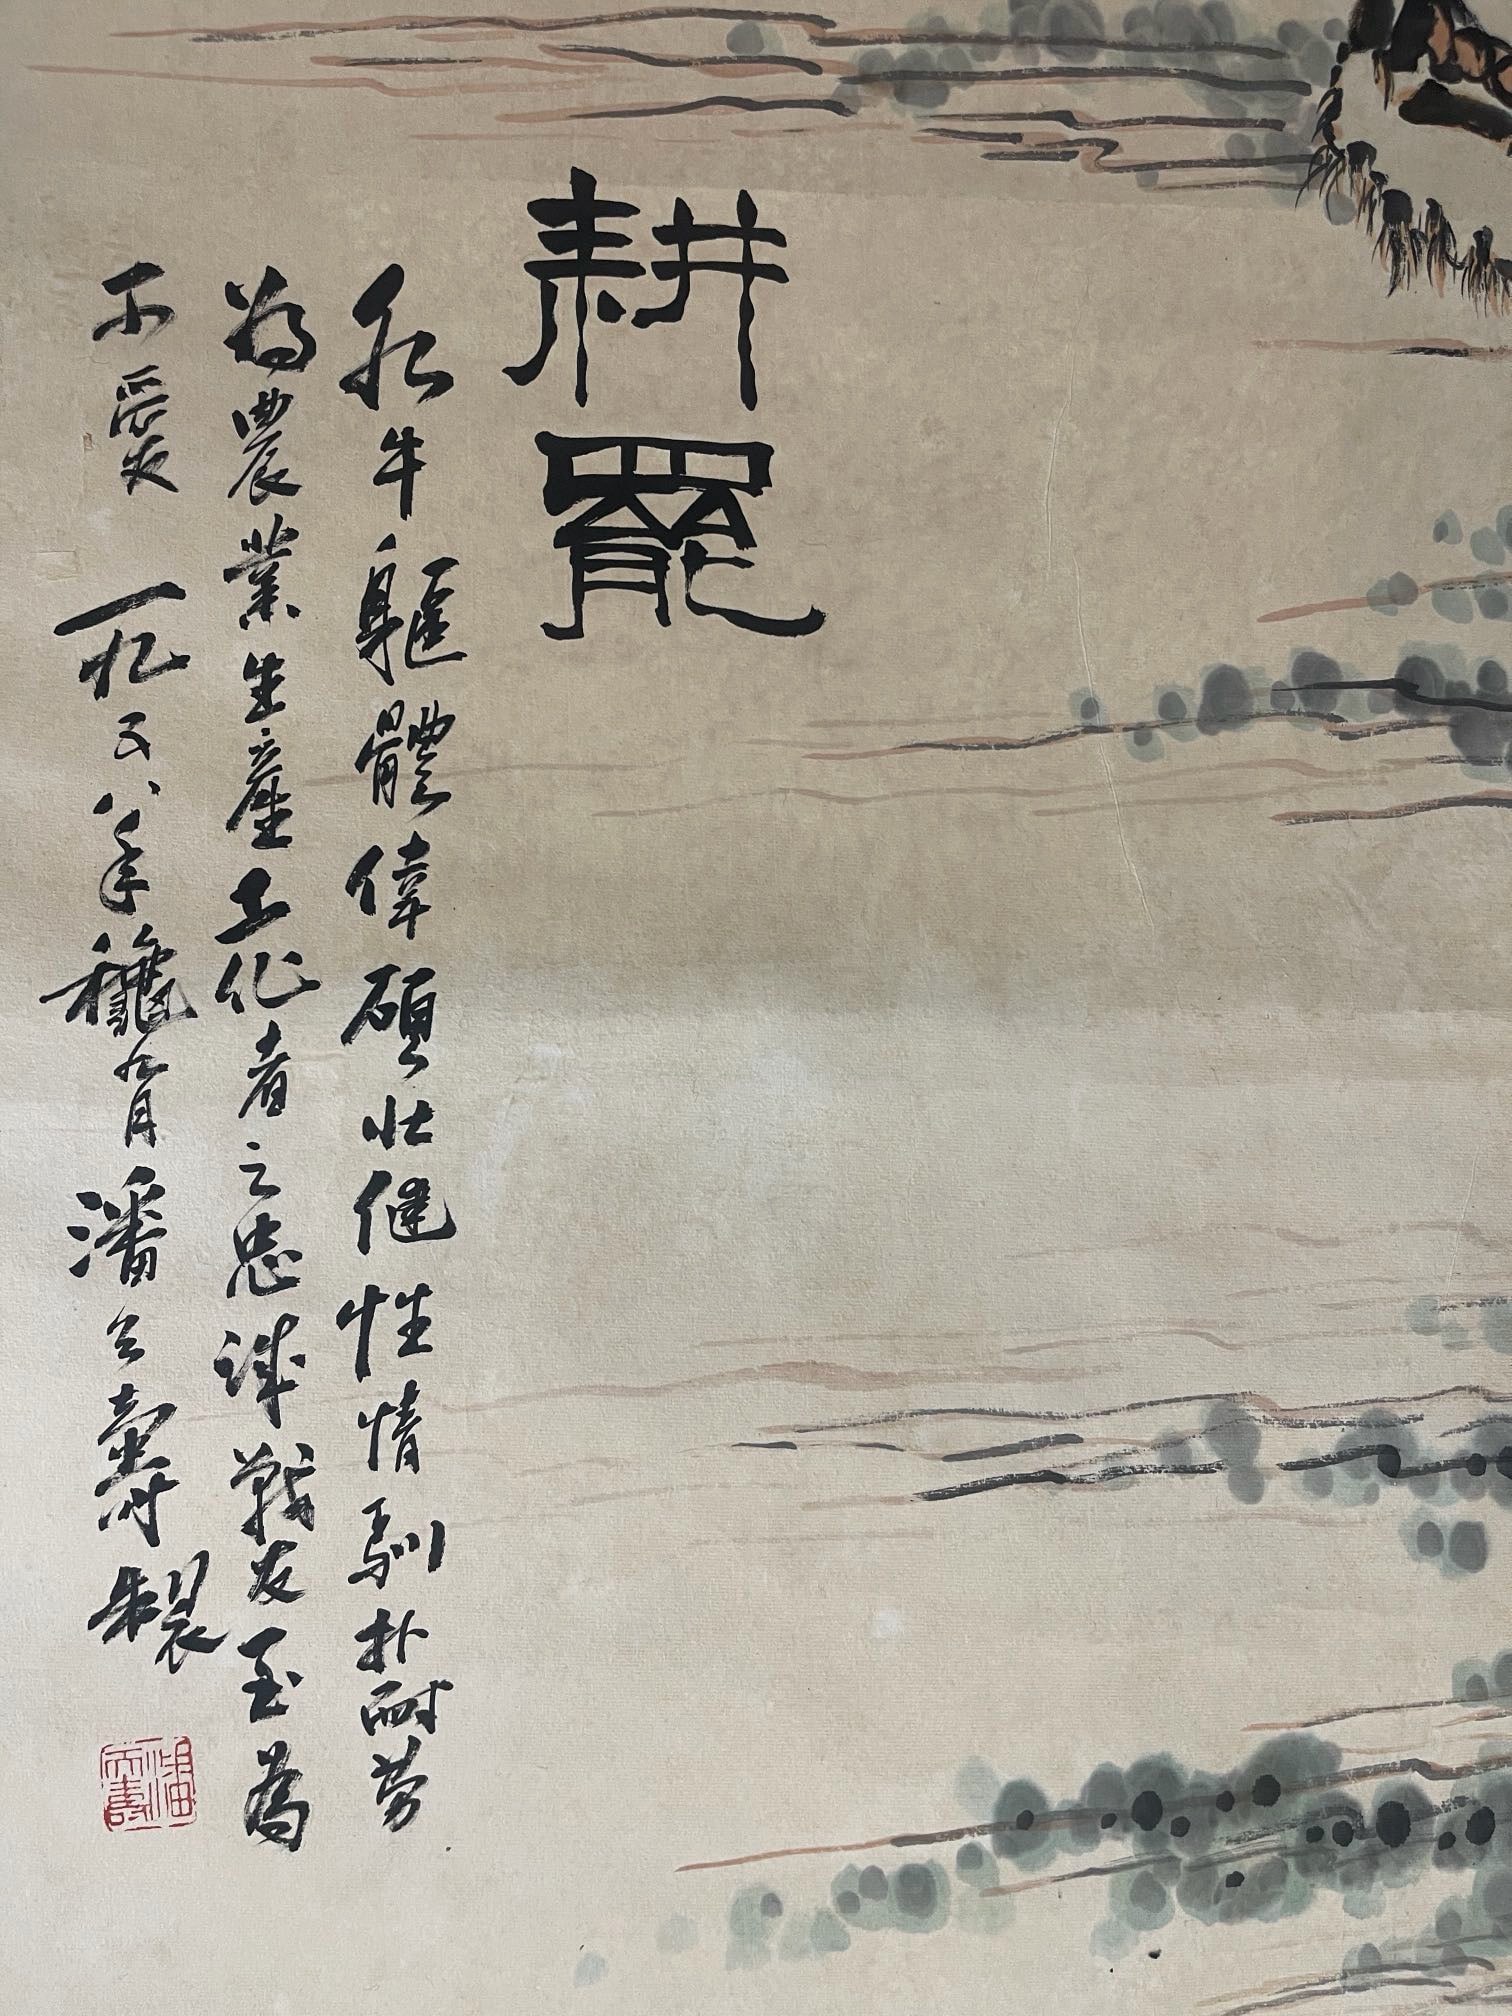 耕罷
水牛軀體偉碩壯健性情馴朴耐勞
為農業生產工作者之忠誠戰友至為
可愛　一九五八年龝九月潘天壽製
潘天壽